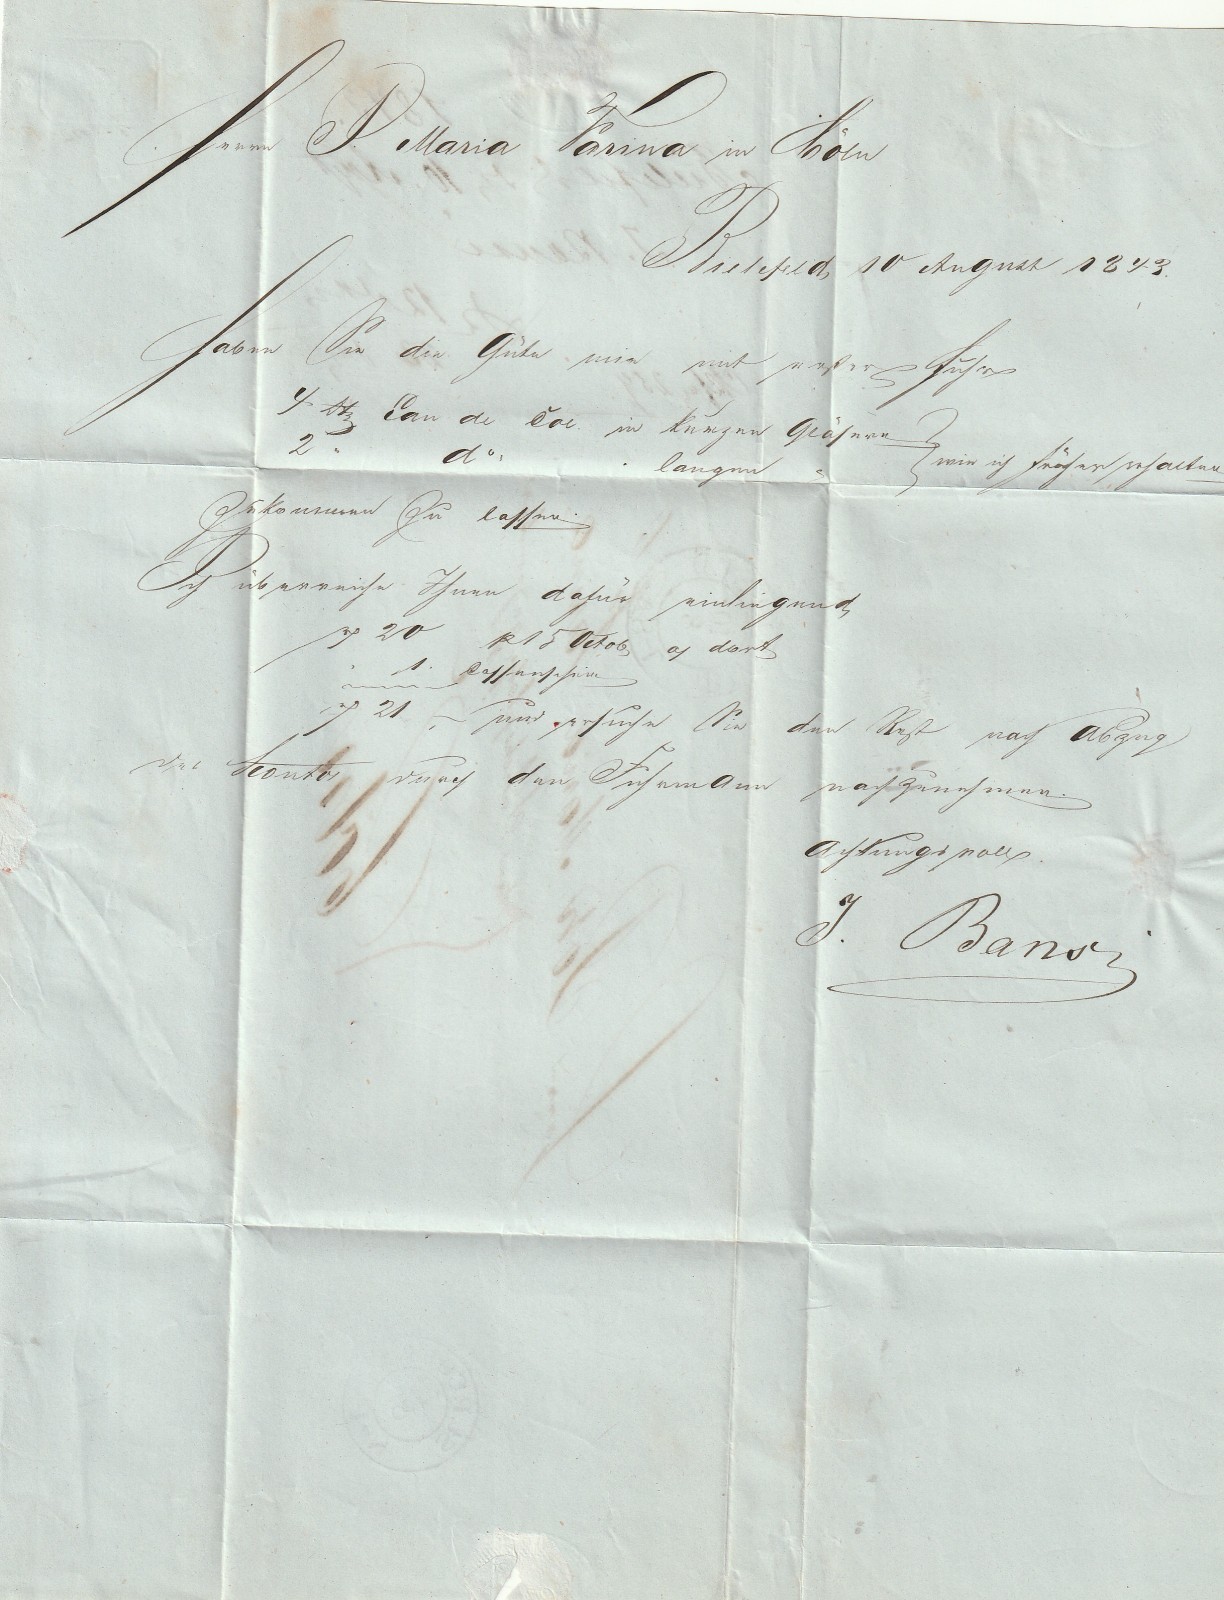 Herrn J. Maria Farina in Cöln
Bielefeld 10 August 1843.
Haben Sie die Güte mir mit erster Fuhre
4 Dtz Eau de Col. in kurzen Gläsern
2 " do. " langen " wie ich früher erhalten
zukommen zu lassen.
Ich überreiche Ihnen dafür einliegend
20 15 Octob a/ dort
" 1. Cassenschein
21 – und ersuche Sie den Rest nach Abzug
des Sconto durch den Fuhrmann nachzunehmen.
Achtungsvoll
J. Bansi